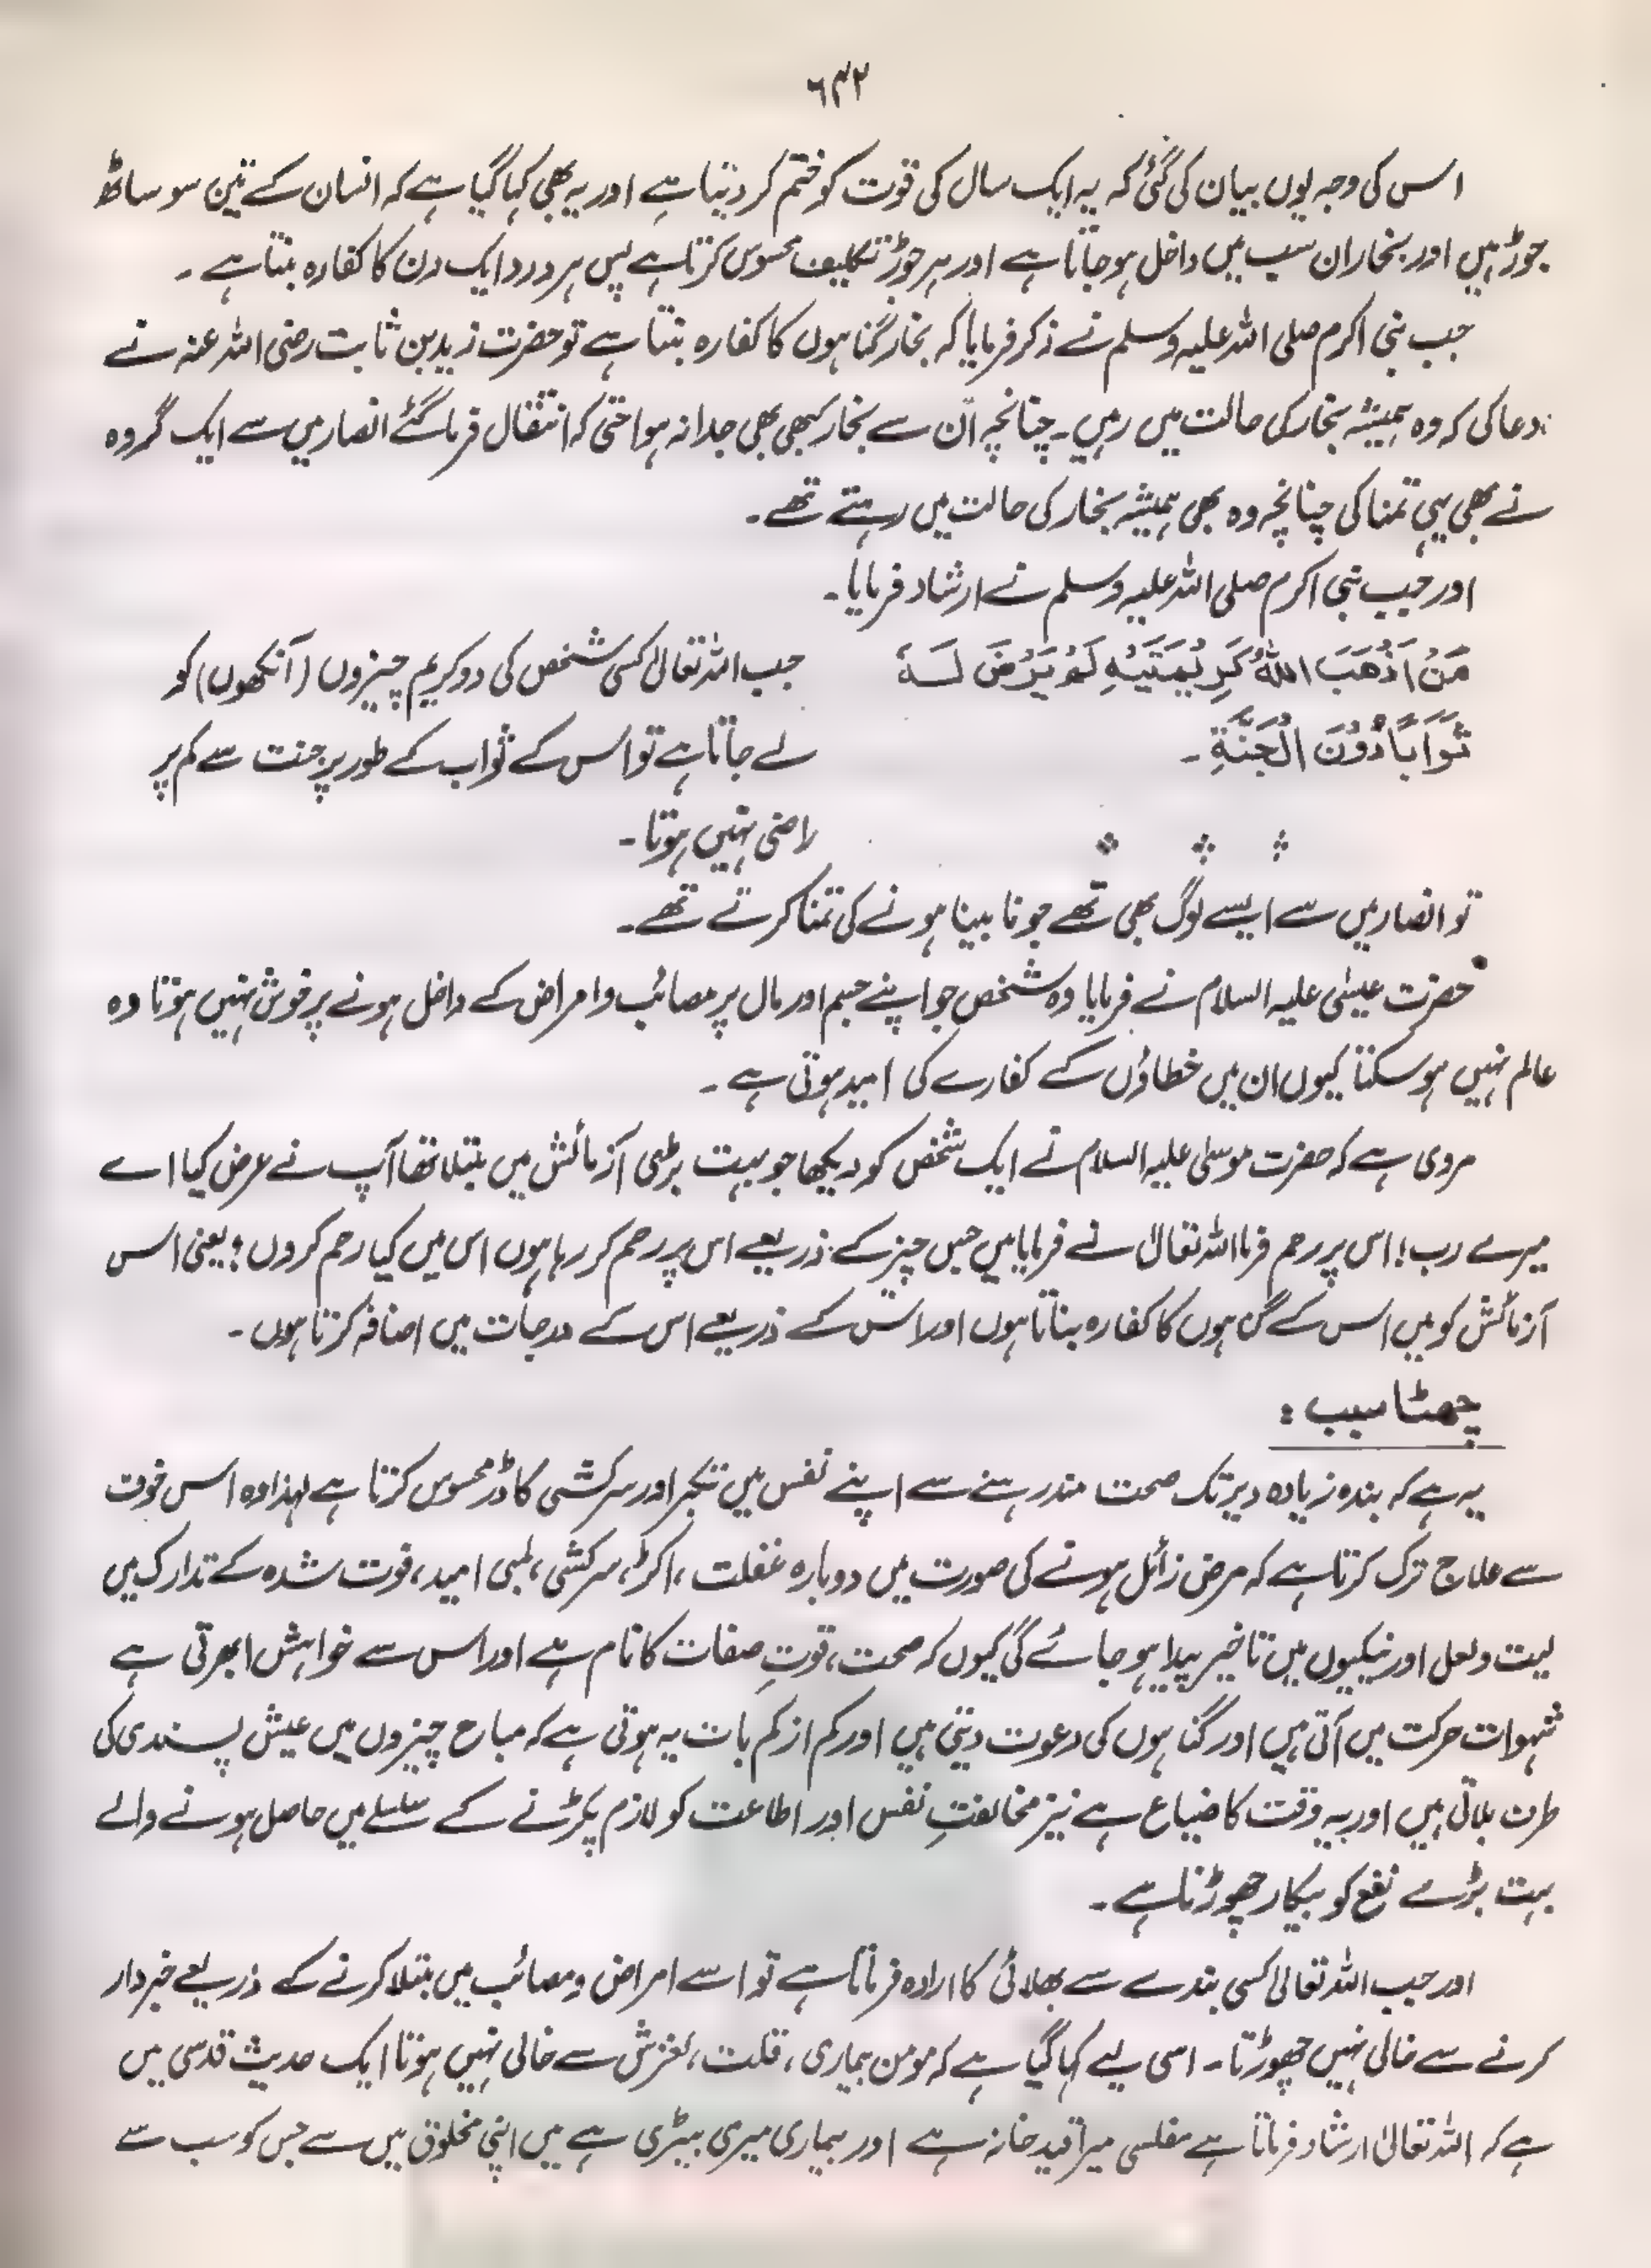 ۶۴۲
اس کی وجہ یوں بیان کی گئی کہ یہ ایک سال کی قوت کو ختم کر دیتا ہے اور یہ بھی کہا گیا ہے کہ انسان کے تین سو ساٹھ
جوڑ ہیں اور بخار ان سب میں داخل ہو جاتا ہے اور ہر جوڑ تکلیف محسوس کرتا ہے پس ہر درد ایک دن کا کفارہ بنتا ہے ۔
جب نبی اکرم صلی اللہ علیہ وسلم نے ذکر فرمایا کہ بخار گناہوں کا کفارہ بنتا ہے تو حضرت زید بن ثابت رضی اللہ عنہ نے
دعا کی کہ وہ ہمیشہ بخار کی حالت میں رہیں ۔ چنانچہ اُن سے بخار کبھی بھی جدا نہ ہوا حتیٰ کہ انتقال فرما گئے انصار میں سے ایک گروہ
نے بھی یہی تمنا کی چنانچہ وہ بھی ہمیشہ بخار کی حالت میں رہتے تھے ۔
اور جب نبی اکرم صلی اللہ علیہ وسلم نے ارشاد فرمایا ۔
مَنْ اَذْهَبَ اللّٰهُ كَرِيْمَتَيْهِ لَمْ يَرْضَ لَهٗ
ثَوَابًا دُوْنَ الْجَنَّةِ ۔
جب اللہ تعالیٰ کسی شخص کی دو کریم چیزوں (آنکھوں) کو
لے جاتا ہے تو اس کے ثواب کے طور پر جنت سے کم پر
راضی نہیں ہوتا ۔
تو انصار میں سے ایسے لوگ بھی تھے جو نابینا ہونے کی تمنا کرتے تھے ۔
حضرت عیسیٰ علیہ السلام نے فرمایا وہ شخص جو اپنے جسم اور مال پر مصائب و امراض کے داخل ہونے پر خوش نہیں ہوتا وہ
عالم نہیں ہو سکتا کیوں ان میں خطاؤں کے کفارے کی امید ہوتی ہے ۔
مروی ہے کہ حضرت موسیٰ علیہ السلام نے ایک شخص کو دیکھا جو بہت بڑی آزمائش میں مبتلا تھا آپ نے عرض کیا اے
میرے رب! اس پر رحم فرما اللہ تعالیٰ نے فرمایا میں جس چیز کے ذریعے اس پر رحم کر رہا ہوں اس میں کیا رحم کروں ؛ یعنی اس
آزمائش کو میں اس کے گن ہوں کا کفارہ بناتا ہوں اور اس کے ذریعے اس کے درجات میں اضافہ کرتا ہوں ۔
چھٹا سبب :
یہ ہے کہ بندہ زیادہ دیر تک صحت مند رہنے سے اپنے نفس میں تکبر اور سرکشی کا ڈر محسوس کرتا ہے لہذا وہ اس خوف
سے علاج ترک کرتا ہے کہ مرض زائل ہونے کی صورت میں دوبارہ غفلت ، اکڑ ، سرکشی ، لمبی امید ، فوت شدہ کے تدارک میں
لیت و لعل اور نیکیوں میں تاخیر پیدا ہو جائے گی کیوں کہ صحت ، قوتِ صفات کا نام ہے اور اس سے خواہش ابھرتی ہے
شہوات حرکت میں آتی ہیں اور گناہوں کی دعوت دیتی ہیں اور کم از کم بات یہ ہوتی ہے کہ مباح چیزوں میں عیش پسندی کی
طرف بلاتی ہیں اور یہ وقت کا ضیاع ہے نیز مخالفتِ نفس اور اطاعت کو لازم پکڑنے کے سلسلے میں حاصل ہونے والے
بہت بڑے نفع کو بیکار چھوڑنا ہے ۔
اور جب اللہ تعالیٰ کسی بندے سے بھلائی کا ارادہ فرماتا ہے تو اسے امراض و مصائب میں مبتلا کرنے کے ذریعے خبردار
کرنے سے خالی نہیں چھوڑتا ۔ اسی لیے کہا گیا ہے کہ مومن بیماری ، قلت ، لغزش سے خالی نہیں ہوتا ایک حدیث قدسی میں
ہے کہ اللہ تعالیٰ ارشاد فرماتا ہے مفلسی میرا قید خانہ ہے اور بیماری میری بیڑی ہے میں اپنی مخلوق میں سے جس کو سب سے